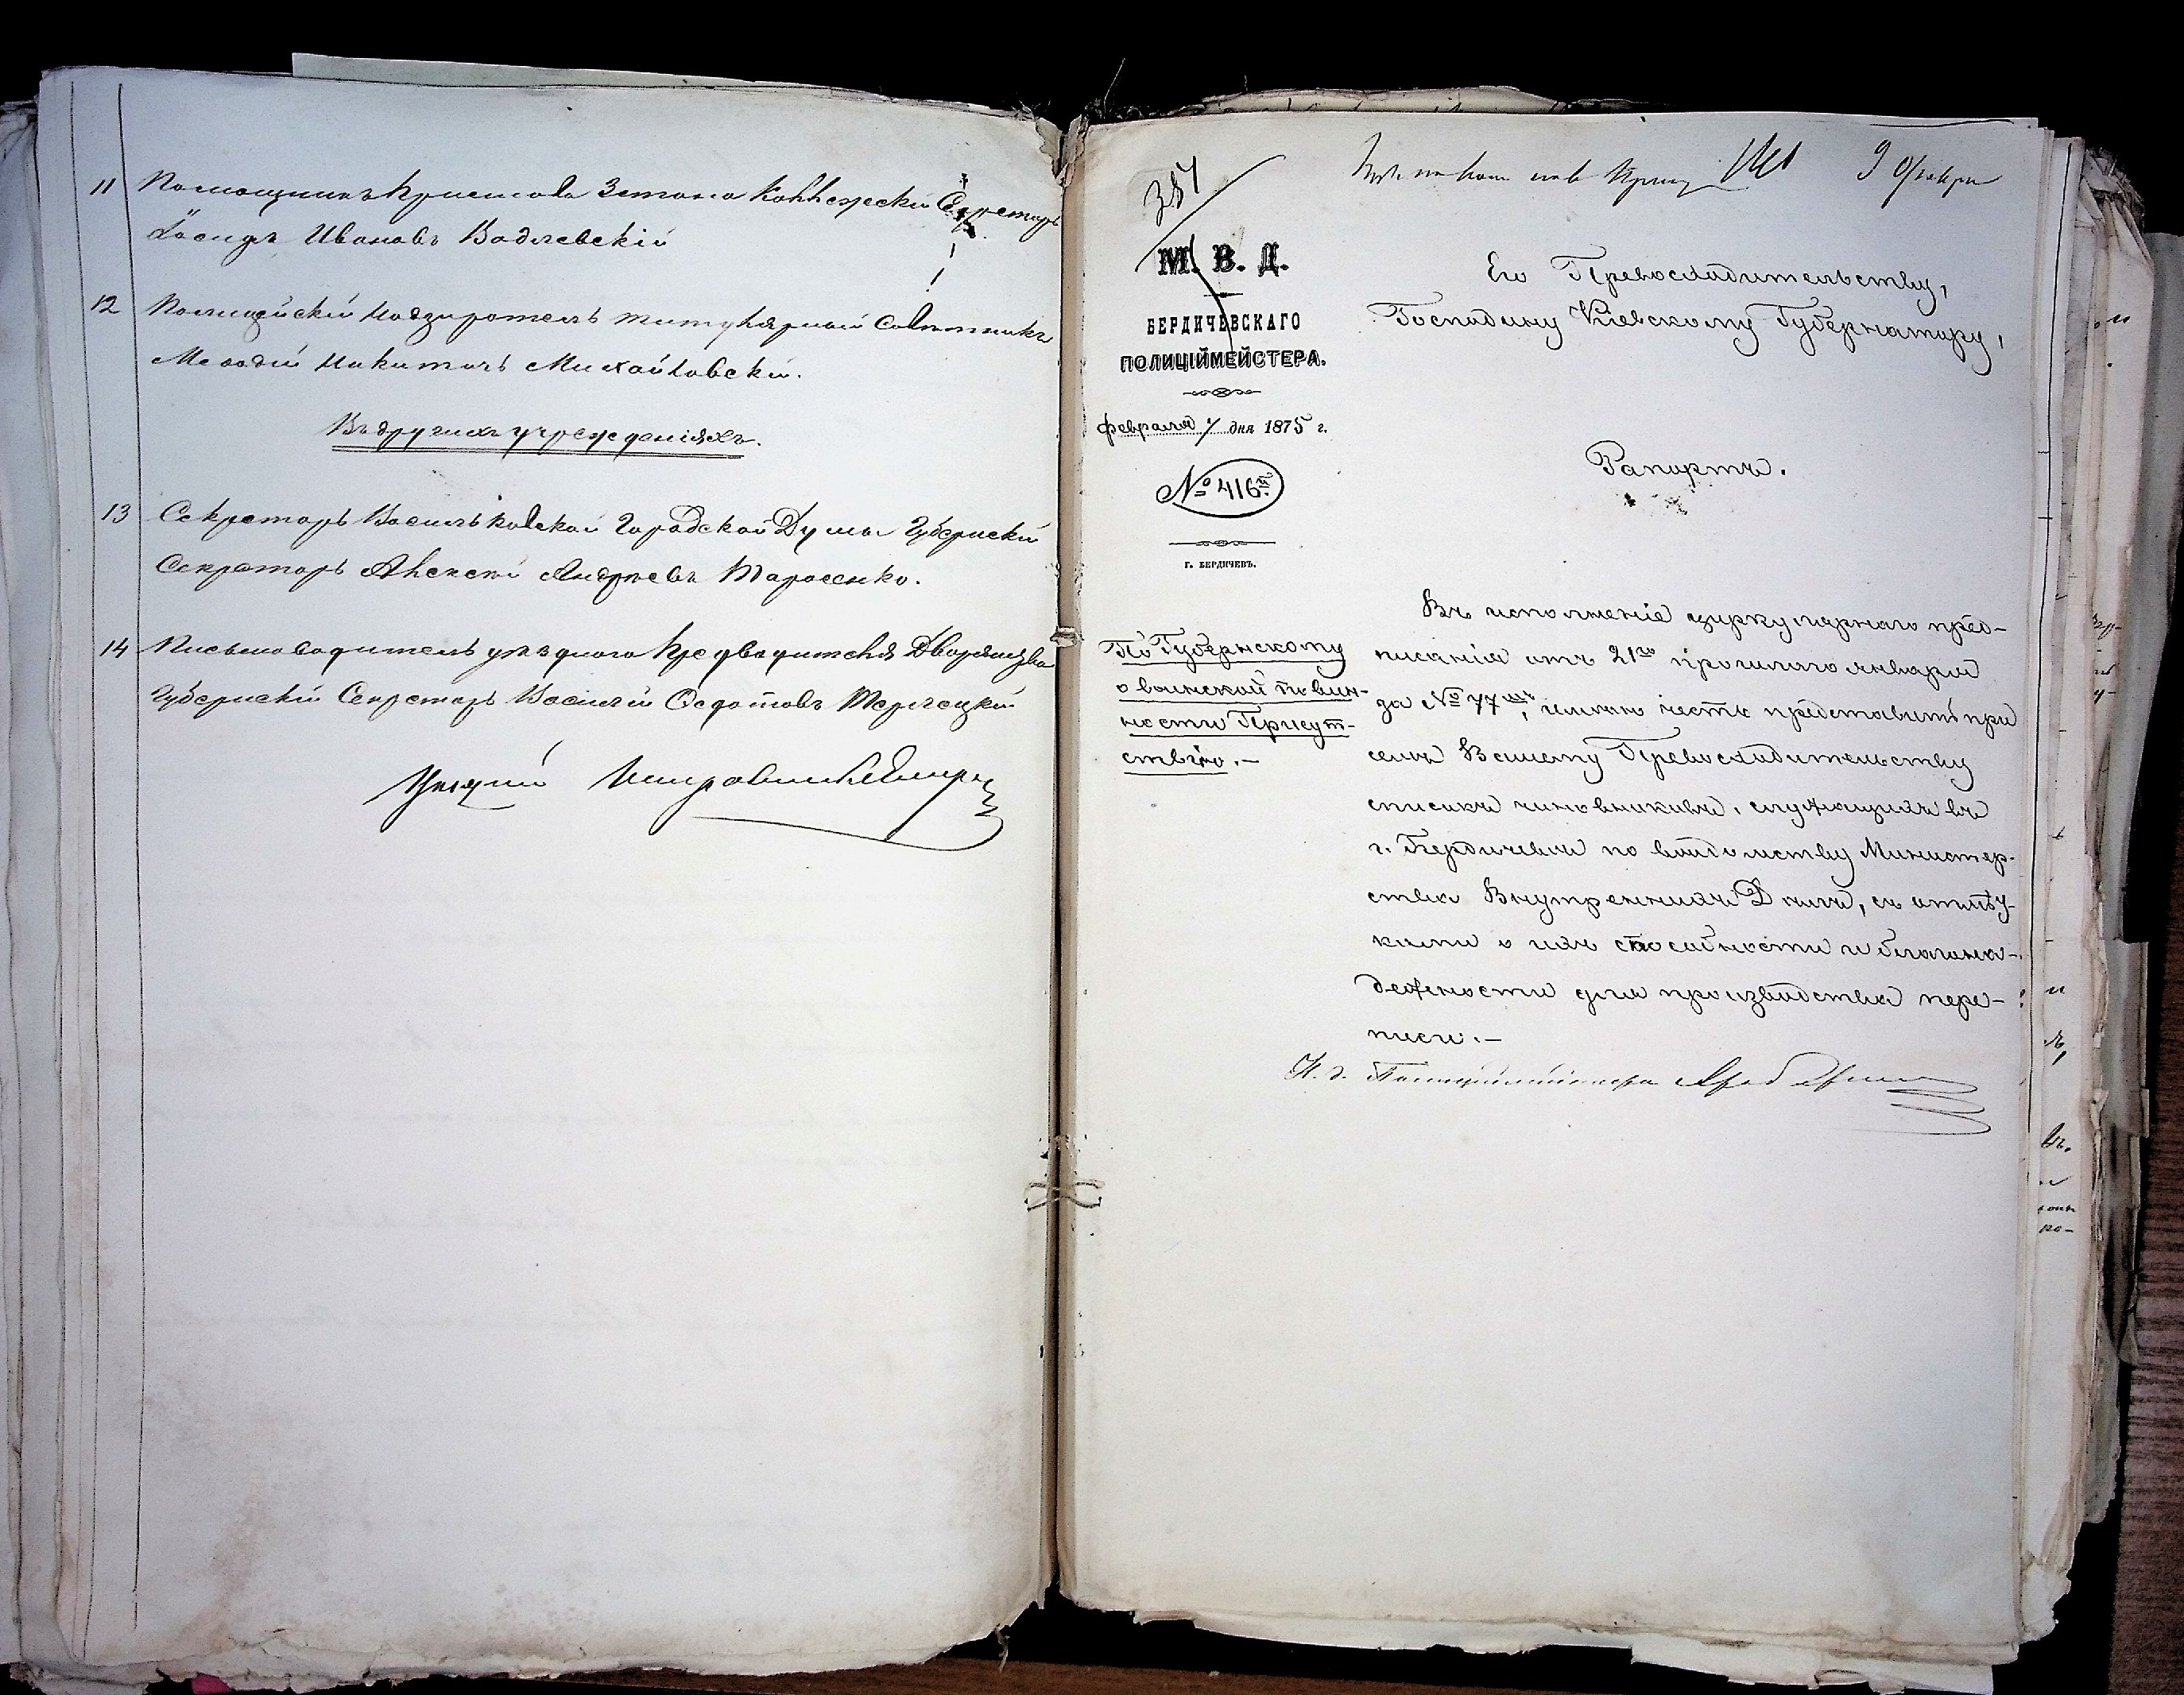 11 Помощникъ Пристава 3 стана Коллежскій Секретарь
Іосифъ Ивановъ Водлевскій
12 Полицейскій Надзиратель титулярный Совѣтникъ
Меѳодій Никитичъ Михайловскій.
Въ другихъ учрежденіяхъ.
13 Секретарь Васильковской Городской Думы Губернскій
Секретарь Алексѣй Андреевъ Тарасенко.
14 Письмоводитель уѣзднаго Предводителя Дворянства
Губернскій Секретарь Василій Федотовъ Терлецкій
Уѣздный Исправникъ
381
9 Февраля
М. В. Д.
БЕРДИЧЕВСКАГО
ПОЛИЦІЙМЕЙСТЕРА.
Февраля 7 дня 1875 г.
№ 416й
Г. БЕРДИЧЕВЪ.
По Губернскому
о воинской повин-
ности Присут-
ствію.—
Его Превосходительству,
Господину Кіевскому Губернатору,
Рапортъ.
Въ исполненіе циркулярнаго пред-
писанія отъ 21го прошлаго января
за № 77мъ, имѣю честь представить при
семъ Вашему Превосходительству
списокъ чиновниковъ, служащихъ въ
г. Бердичевѣ по вѣдомству Министер-
ства Внутреннихъ Дѣлъ, съ отмѣт-
ками о ихъ способности и благона-
дежности для производства пере-
писи.—
И. д. Полиціймейстера